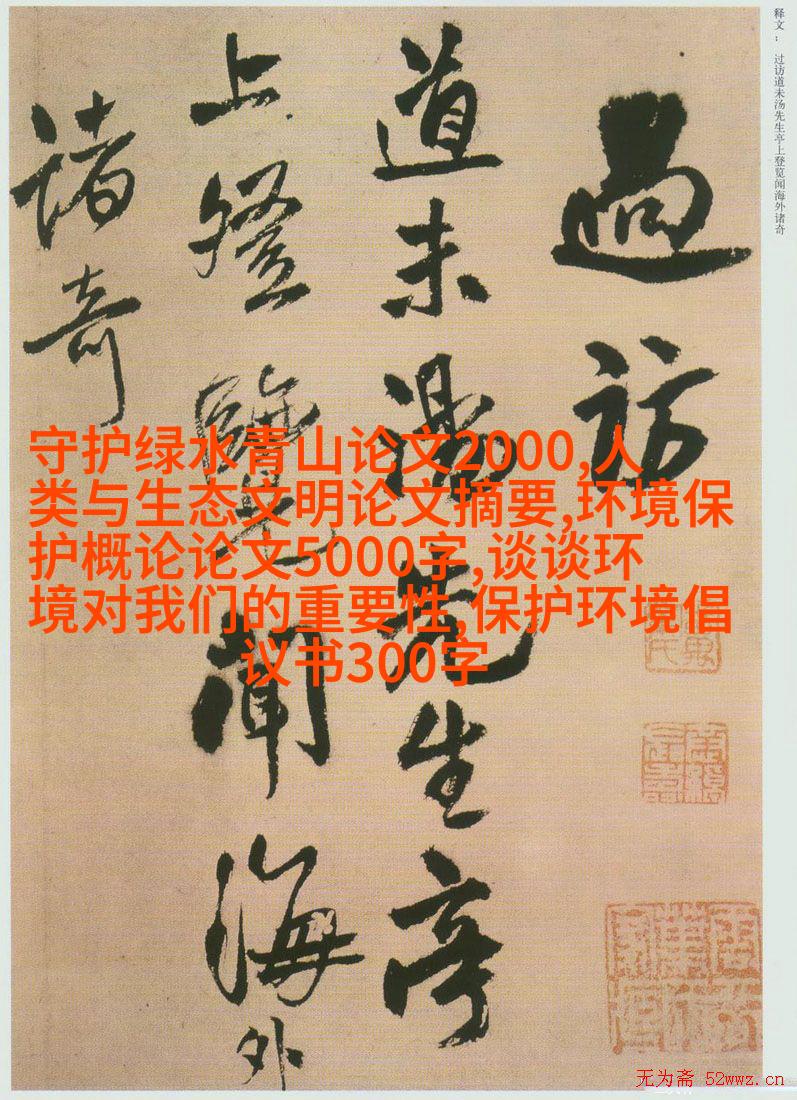 释文：
过访道未汤先生亭上登览闻海外诸奇
過訪
道未湯先生亭
上登覽聞海外
諸奇
守护绿水青山论文2000,人
类与生态文明论文摘要,环境保
护概论论文5000字,谈谈环
境对我们的重要性,保护环境倡
议书300字
无为斋 52wwz.cn